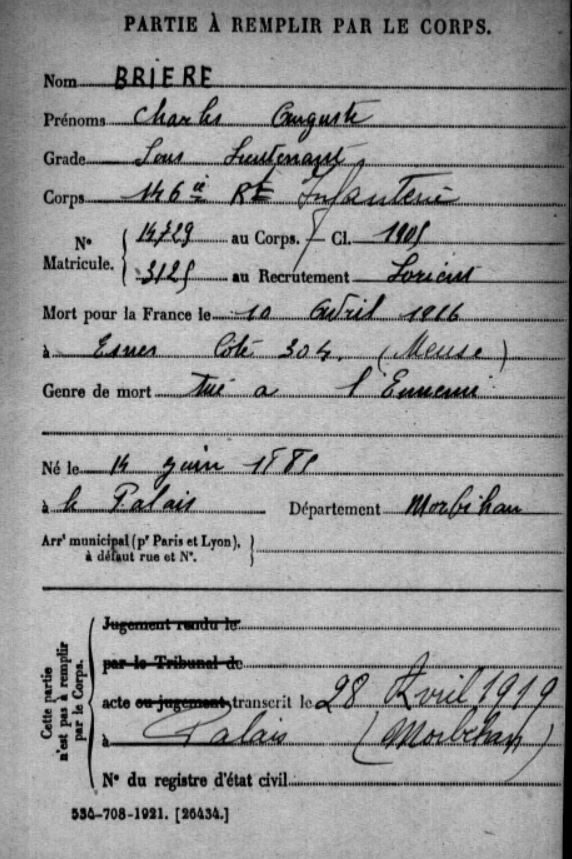 PARTIE À REMPLIR PAR LE CORPS.
Nom BRIERE
Prénoms Charles Auguste
Grade Sous Lieutenant
Corps 146ie Rt Infanterie
N° Matricule. 14729 au Corps. — Cl. 1905
3125 au Recrutement Lorient
Mort pour la France le 10 Avril 1916
à Esnes Côte 304. (Meuse)
Genre de mort Tué a l'Ennemi
Né le 14 Juin 1885
à le Palais Département Morbihan
Arrt municipal (pr Paris et Lyon), à défaut rue et N°.
Cette partie n'est pas à remplir par le Corps.
Jugement rendu le
par le Tribunal de
acte ou jugement transcrit le 28 Avril 1919
à Palais (Morbihan)
N° du registre d'état civil
534-708-1921. [26434.]